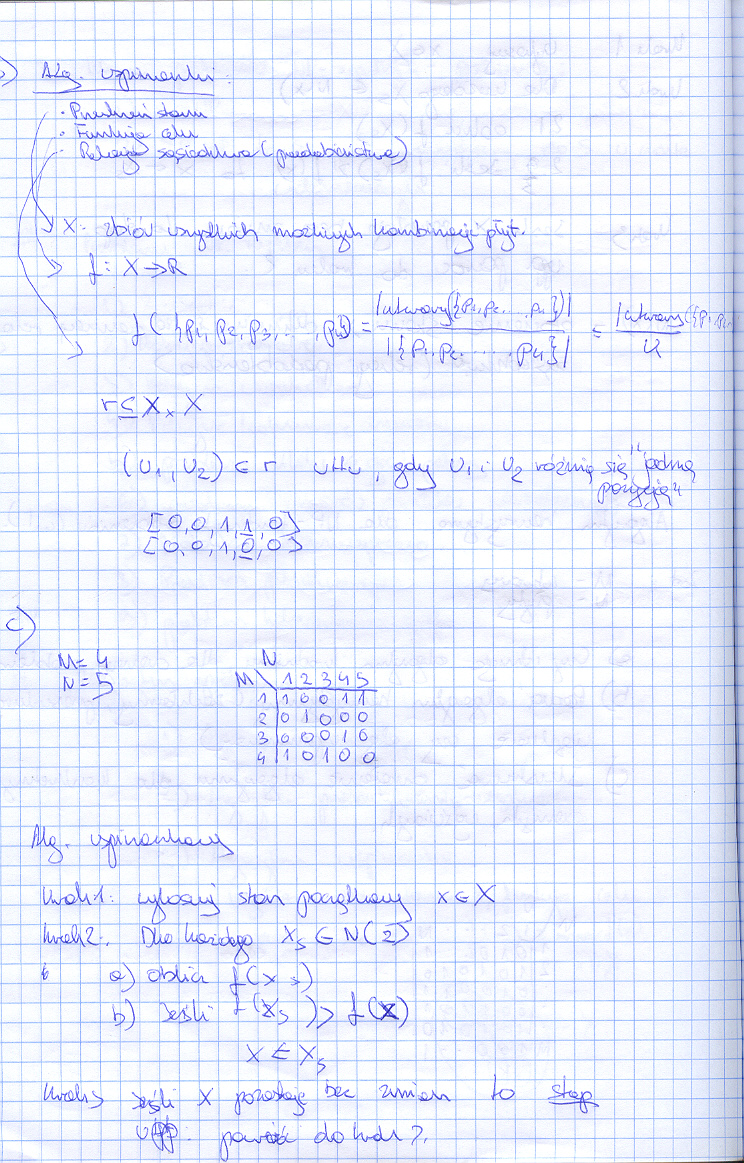 b) Alg. wspinaczki:
· Przestrzeń stanu
· Funkcja celu
· Relacja sąsiedztwa (podobieństwa)
X: zbiór wszystkich możliwych kombinacji płyt.
f: X → R
f({p1, p2, p3, ..., p4}) = |utwory({p1, p2, ..., p4})| / |{p1, p2, ..., p4}| = |utwory({p1, p2, / K
r ⊆ X × X
(U1, U2) ∈ r wttw, gdy U1 i U2 różnią się "jedną
pozycją"
[0,0,1,1,0]
[0,0,1,0,0]
c)
M=4
N=5
N
M 1 2 3 4 5
1 1 0 0 1 1
2 0 1 0 0 0
3 0 0 0 1 0
4 1 0 1 0 0
Alg. wspinaczkowy
Krok1: wylosuj stan początkowy x ∈ X
Krok2: Dla każdego Xs ∈ N(2)
a) oblicz f(xs)
b) Jeśli f(xs) > f(x)
X ← Xs
Krok3 jeśli X pozostaje bez zmian to stop
wpp: powrót do krok 2.